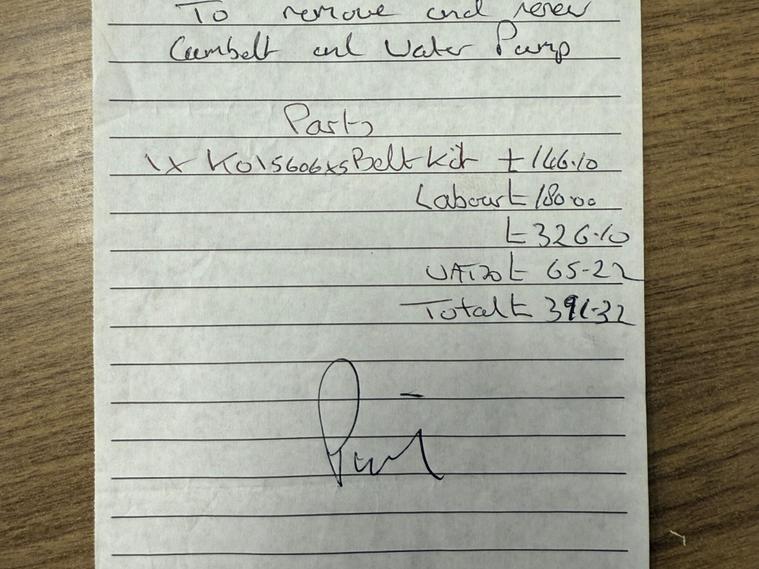 To remove and renew
Cambelt and Water Pump
Parts
1x K015606xs Belt Kit £146.10
Labour £180.00
£326.10
VAT20 £ 65-22
Total £ 391-32